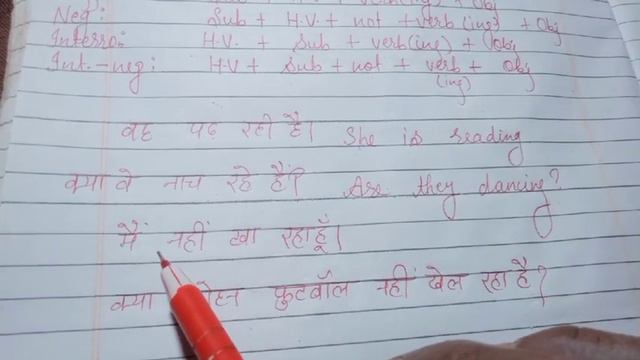 + Obj
Neg: Sub + H.V. + not + verb (ing) + Obj
Interro: H.V. + Sub + verb (ing) + Obj
Int.-neg: H.V + Sub + not + verb + Obj
(ing)
वह पढ़ रही है। She is reading
क्या वे नाच रहे हैं? Are they dancing?
मैं नहीं खा रहा हूँ।
क्या फुटबॉल नहीं खेल रहा है?